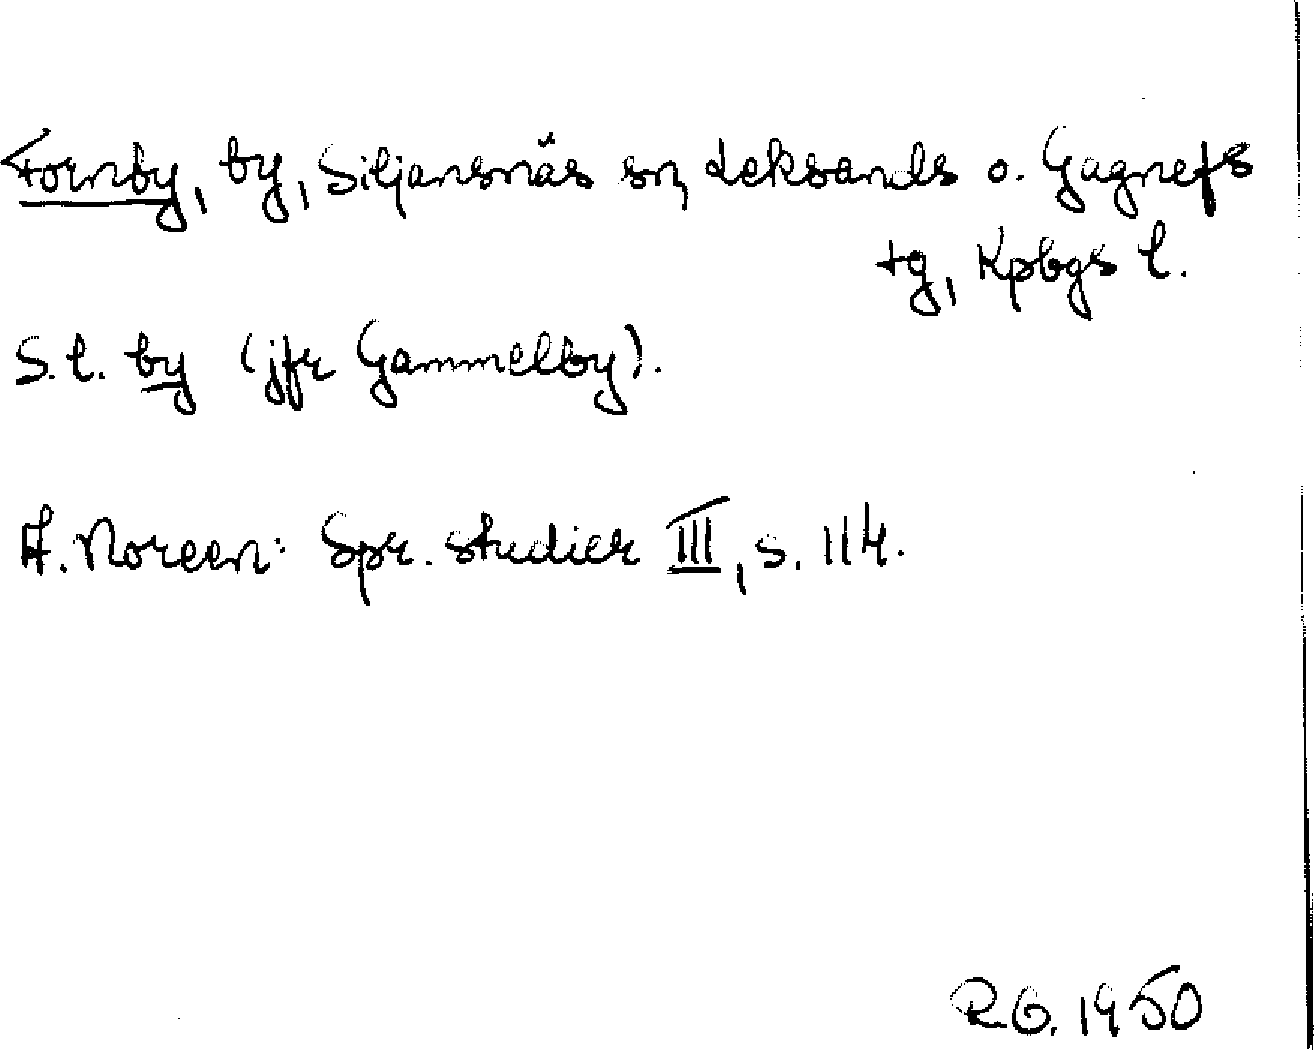 Fornby, by, Siljansnäs sn, Leksands o. Gagnefs
tg, Kpbgs l.
S.l. by (jfr Gammelby).
A. Noreen: Spr. studier III, s. 114.
R.G. 1950